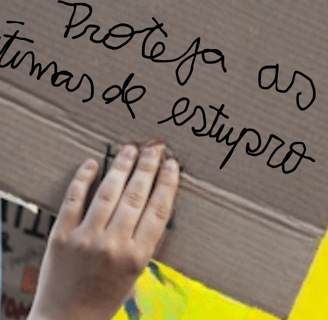 Proteja as
timas de estupro